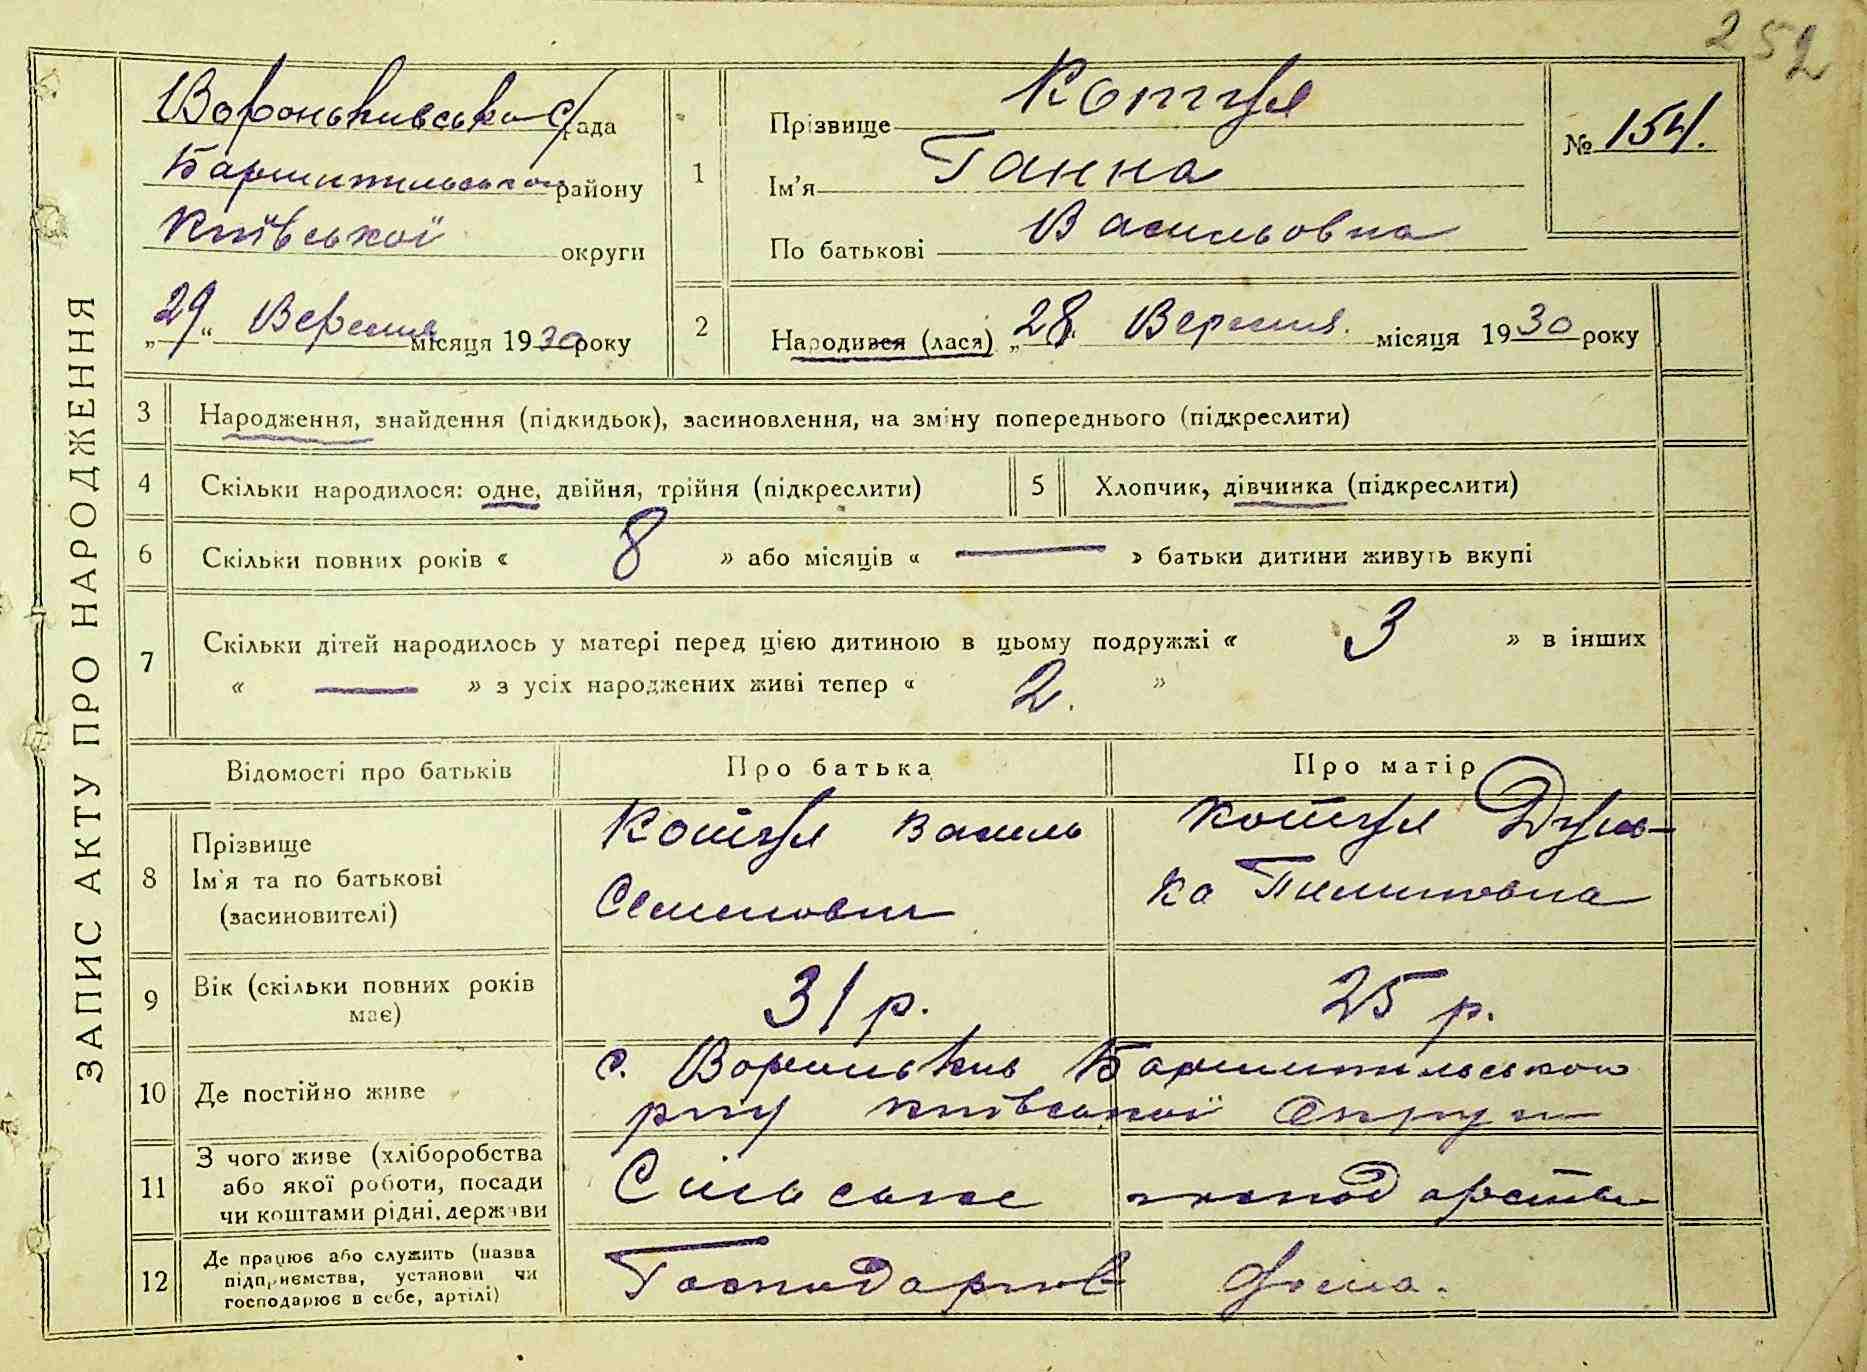 252
ЗАПИС АКТУ ПРО НАРОДЖЕННЯ
Вороньківська с/рада
Бориспільського району
Київської округи
„29“ Вересня місяця 1930 року
1
Прізвище Котуя
Ім'я Ганна
По батькові Васильовна
№ 154.
2
Народився (лася) „28“ Вересня. місяця 1930 року
3 Народження, знайдення (підкидьок), засиновлення, на зміну попереднього (підкреслити)
4 Скільки народилося: одне, двійня, трійня (підкреслити)
5 Хлопчик, дівчинка (підкреслити)
6 Скільки повних років « 8 » або місяців « — » батьки дитини живуть вкупі
7 Скільки дітей народилось у матері перед цією дитиною в цьому подружжі « 3 » в інших
« — » з усіх народжених живі тепер « 2. »
Відомості про батьків
Про батька
Про матір
8
Прізвище
Ім'я та по батькові
(засиновителі)
Котуя Василь
Семенович
Котуя
ка Пилиповна
9
Вік (скільки повних років
має)
31 р.
25 р.
10 Де постійно живе
с. Вороньків Бориспільського
р-ну Київської Округи
11
З чого живе (хліборобства
або якої роботи, посади
чи коштами рідні, держави
Сільське господарство
12
Де працює або служить (назва
підприємства, установи чи
господарює в себе, артілі)
Господарює дома.